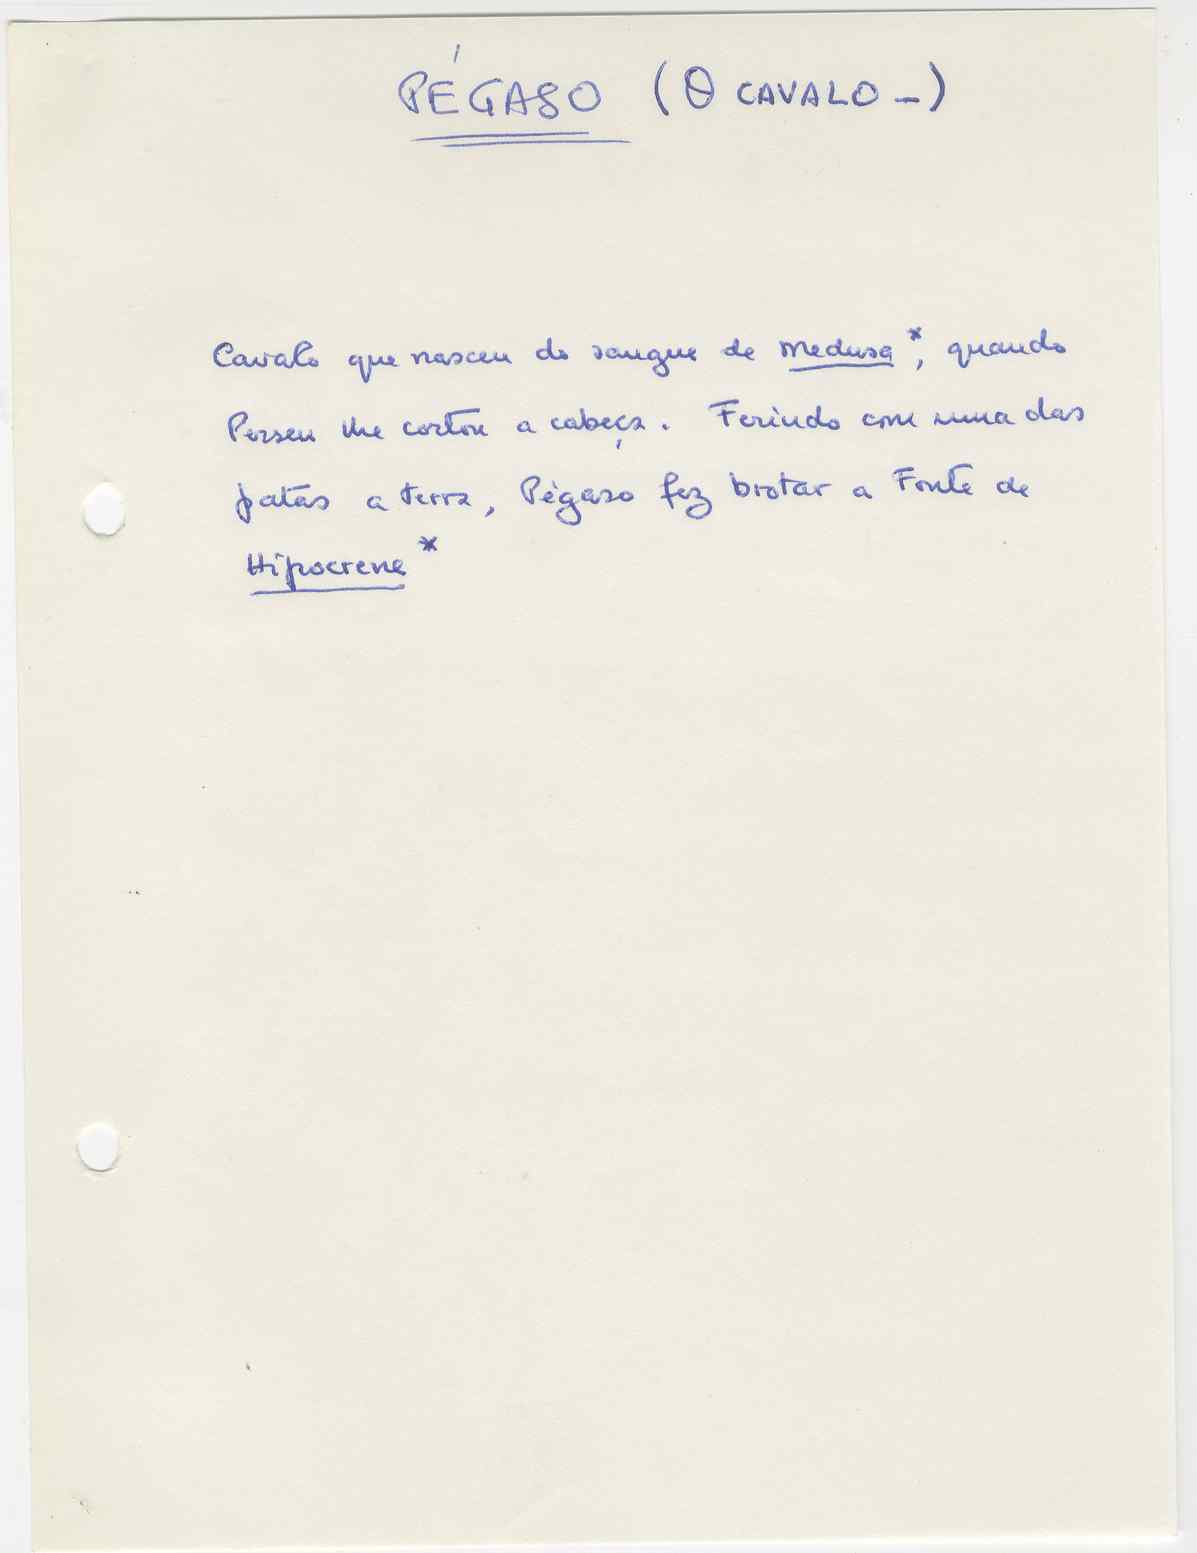 PÉGASO (O CAVALO –)
Cavalo que nasceu do sangue de Medusa*, quando
Perseu lhe cortou a cabeça. Ferindo com uma das
patas a terra, Pégaso fez brotar a Fonte de
Hipocrene*